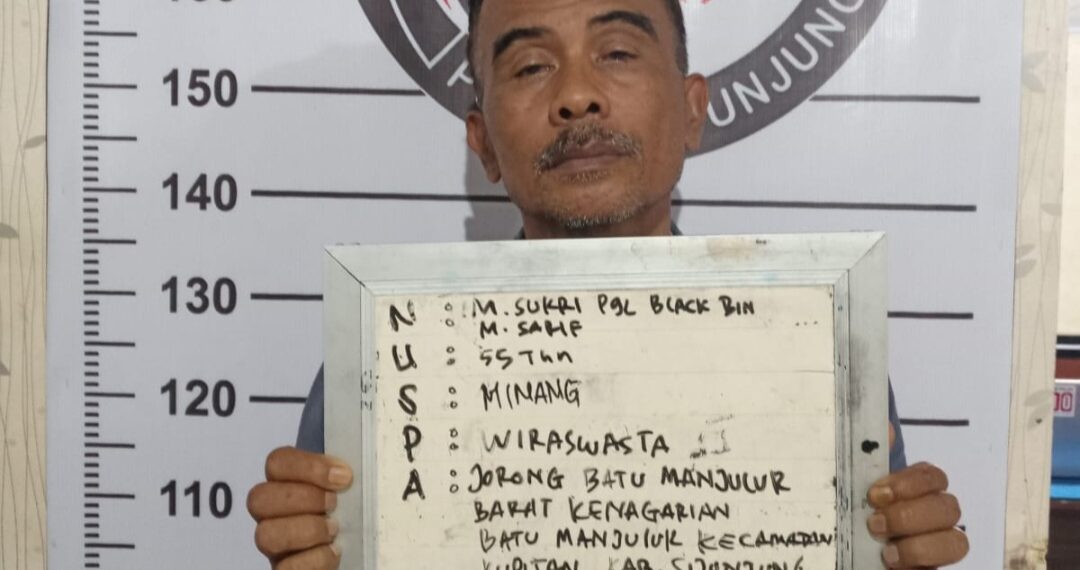 150
140
130
120
110
UNJUNG
N : M. SUKRI Pgl BLACK BIN
M. SAHF
U : 55 Thn
S : MINANG
P : WIRASWASTA
A : JORONG BATU MANJULUR
BARAT KENAGARIAN
BATU MANJULUR KECAMATAN
KUPITAN KAB. SIJUNJUNG